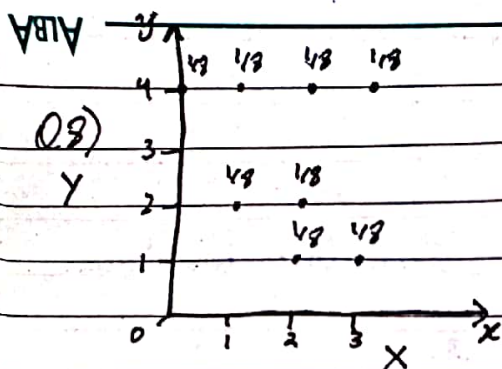 ALBA
y
1/8 1/8 1/8 1/8
4
Q8)
3
Y
1/8 1/8
2
1/8 1/8
1
0 1 2 3 x
X